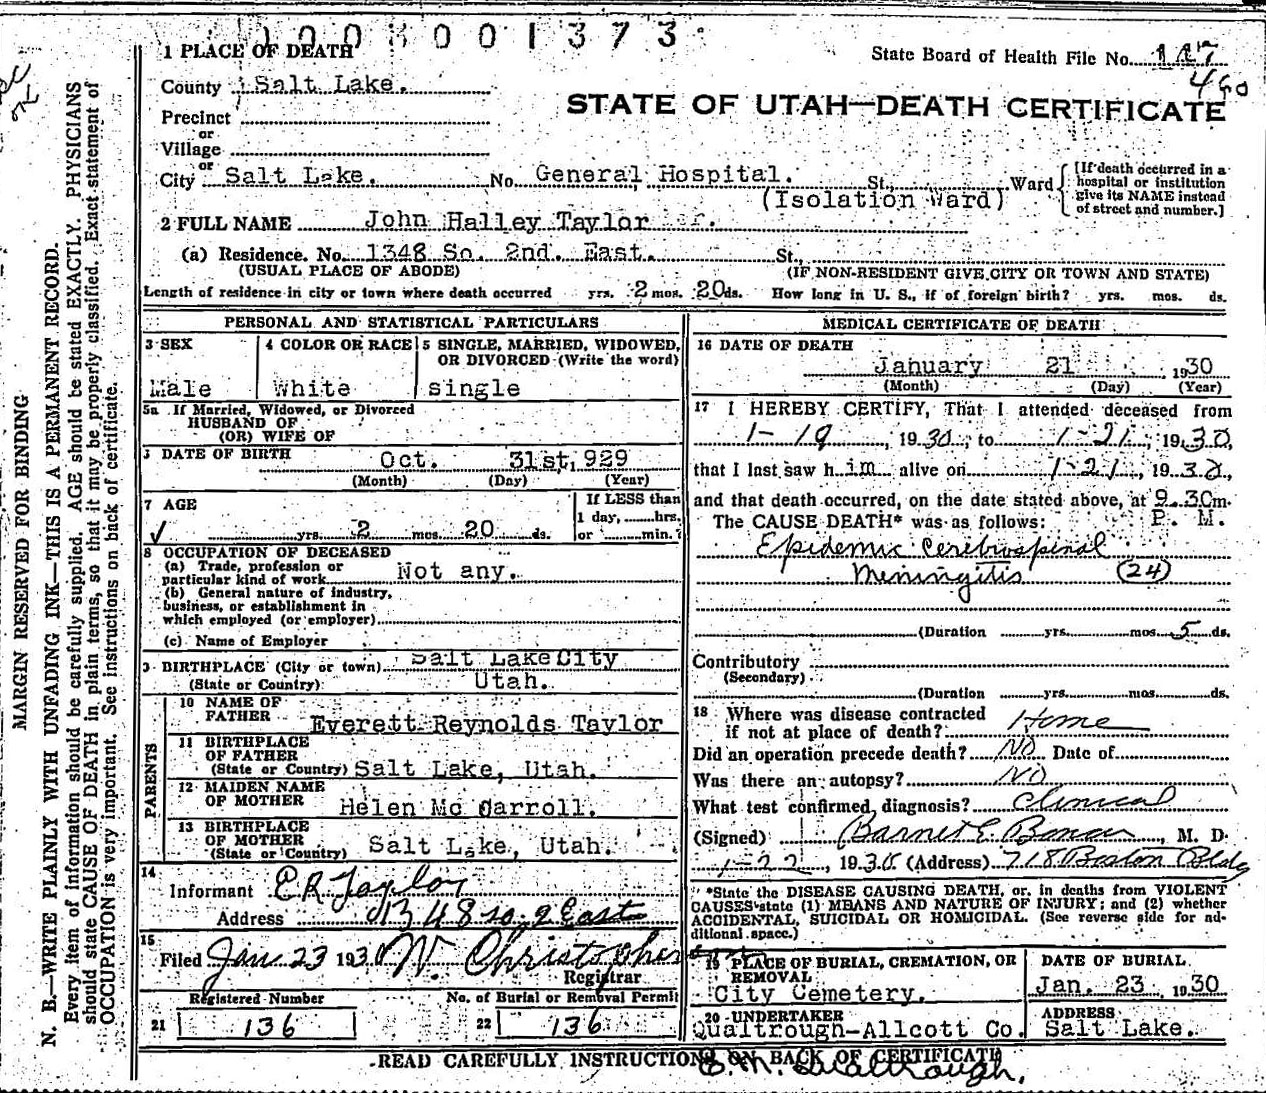 1003001373
1 PLACE OF DEATH
State Board of Health File No. 117
460
County Salt Lake.
STATE OF UTAH—DEATH CERTIFICATE
Precinct
or
Village
or
City Salt Lake. No. General Hospital. St., Ward
(Isolation Ward)
[If death occurred in a
hospital or institution
give its NAME instead
of street and number.]
2 FULL NAME John Halley Taylor
(a) Residence. No. 1348 So. 2nd. East. St.,
(USUAL PLACE OF ABODE) (IF NON-RESIDENT GIVE CITY OR TOWN AND STATE)
Length of residence in city or town where death occurred yrs. 2 mos. 20 ds. How long in U. S., if of foreign birth? yrs. mos. ds.
PERSONAL AND STATISTICAL PARTICULARS
3 SEX 4 COLOR OR RACE 5 SINGLE, MARRIED, WIDOWED,
OR DIVORCED (Write the word)
Male White single
5a If Married, Widowed, or Divorced
HUSBAND OF
(OR) WIFE OF
DATE OF BIRTH Oct. 31st, 929
(Month) (Day) (Year)
7 AGE If LESS than
1 day, hrs.
yrs. 2 mos. 20 ds. or min.?
8 OCCUPATION OF DECEASED
(a) Trade, profession or
particular kind of work Not any.
(b) General nature of industry,
business, or establishment in
which employed (or employer)
(c) Name of Employer
BIRTHPLACE (City or town) Salt Lake City
(State or Country) Utah.
PARENTS
10 NAME OF
FATHER Everett Reynolds Taylor
11 BIRTHPLACE
OF FATHER
(State or Country) Salt Lake, Utah.
12 MAIDEN NAME
OF MOTHER Helen Mc Carroll.
13 BIRTHPLACE
OF MOTHER
(State or Country) Salt Lake, Utah.
14
Informant E R Taylor
Address 1348 so. 2 East
15
Filed Jan 23 1930 W. Christopher
Registrar
Registered Number No. of Burial or Removal Permit
21 136 22 136
MEDICAL CERTIFICATE OF DEATH
16 DATE OF DEATH
January 21 1930
(Month) (Day) (Year)
17 I HEREBY CERTIFY, That I attended deceased from
1-19, 1930, to 1-21, 1930,
that I last saw him alive on 1-21, 1930,
and that death occurred, on the date stated above, at 9.30m.
The CAUSE DEATH* was as follows: P. M.
Epidemic Cerebrospinal
Meningitis (24)
(Duration yrs. mos. 5 ds.
Contributory
(Secondary)
(Duration yrs. mos. ds.
18 Where was disease contracted
if not at place of death? Home
Did an operation precede death? No Date of
Was there an autopsy? No
What test confirmed diagnosis? Clinical
(Signed) Barnet E. Bonar, M. D.
1-22, 1930 (Address) 718 Boston Bldg
*State the DISEASE CAUSING DEATH, or, in deaths from VIOLENT
CAUSES state (1) MEANS AND NATURE OF INJURY; and (2) whether
ACCIDENTAL, SUICIDAL OR HOMICIDAL. (See reverse side for ad-
ditional space.)
19 PLACE OF BURIAL, CREMATION, OR
REMOVAL
City Cemetery.
DATE OF BURIAL
Jan. 23, 1930
20 UNDERTAKER
Qualtrough-Allcott Co.
ADDRESS
Salt Lake.
READ CAREFULLY INSTRUCTIONS ON BACK OF CERTIFICATE
E. M. Qualtrough.
MARGIN RESERVED FOR BINDING
N. B.—WRITE PLAINLY WITH UNFADING INK—THIS IS A PERMANENT RECORD.
Every item of information should be carefully supplied. AGE should be stated EXACTLY. PHYSICIANS
should state CAUSE OF DEATH in plain terms, so that it may be properly classified. Exact statement of
OCCUPATION is very important. See instructions on back of certificate.